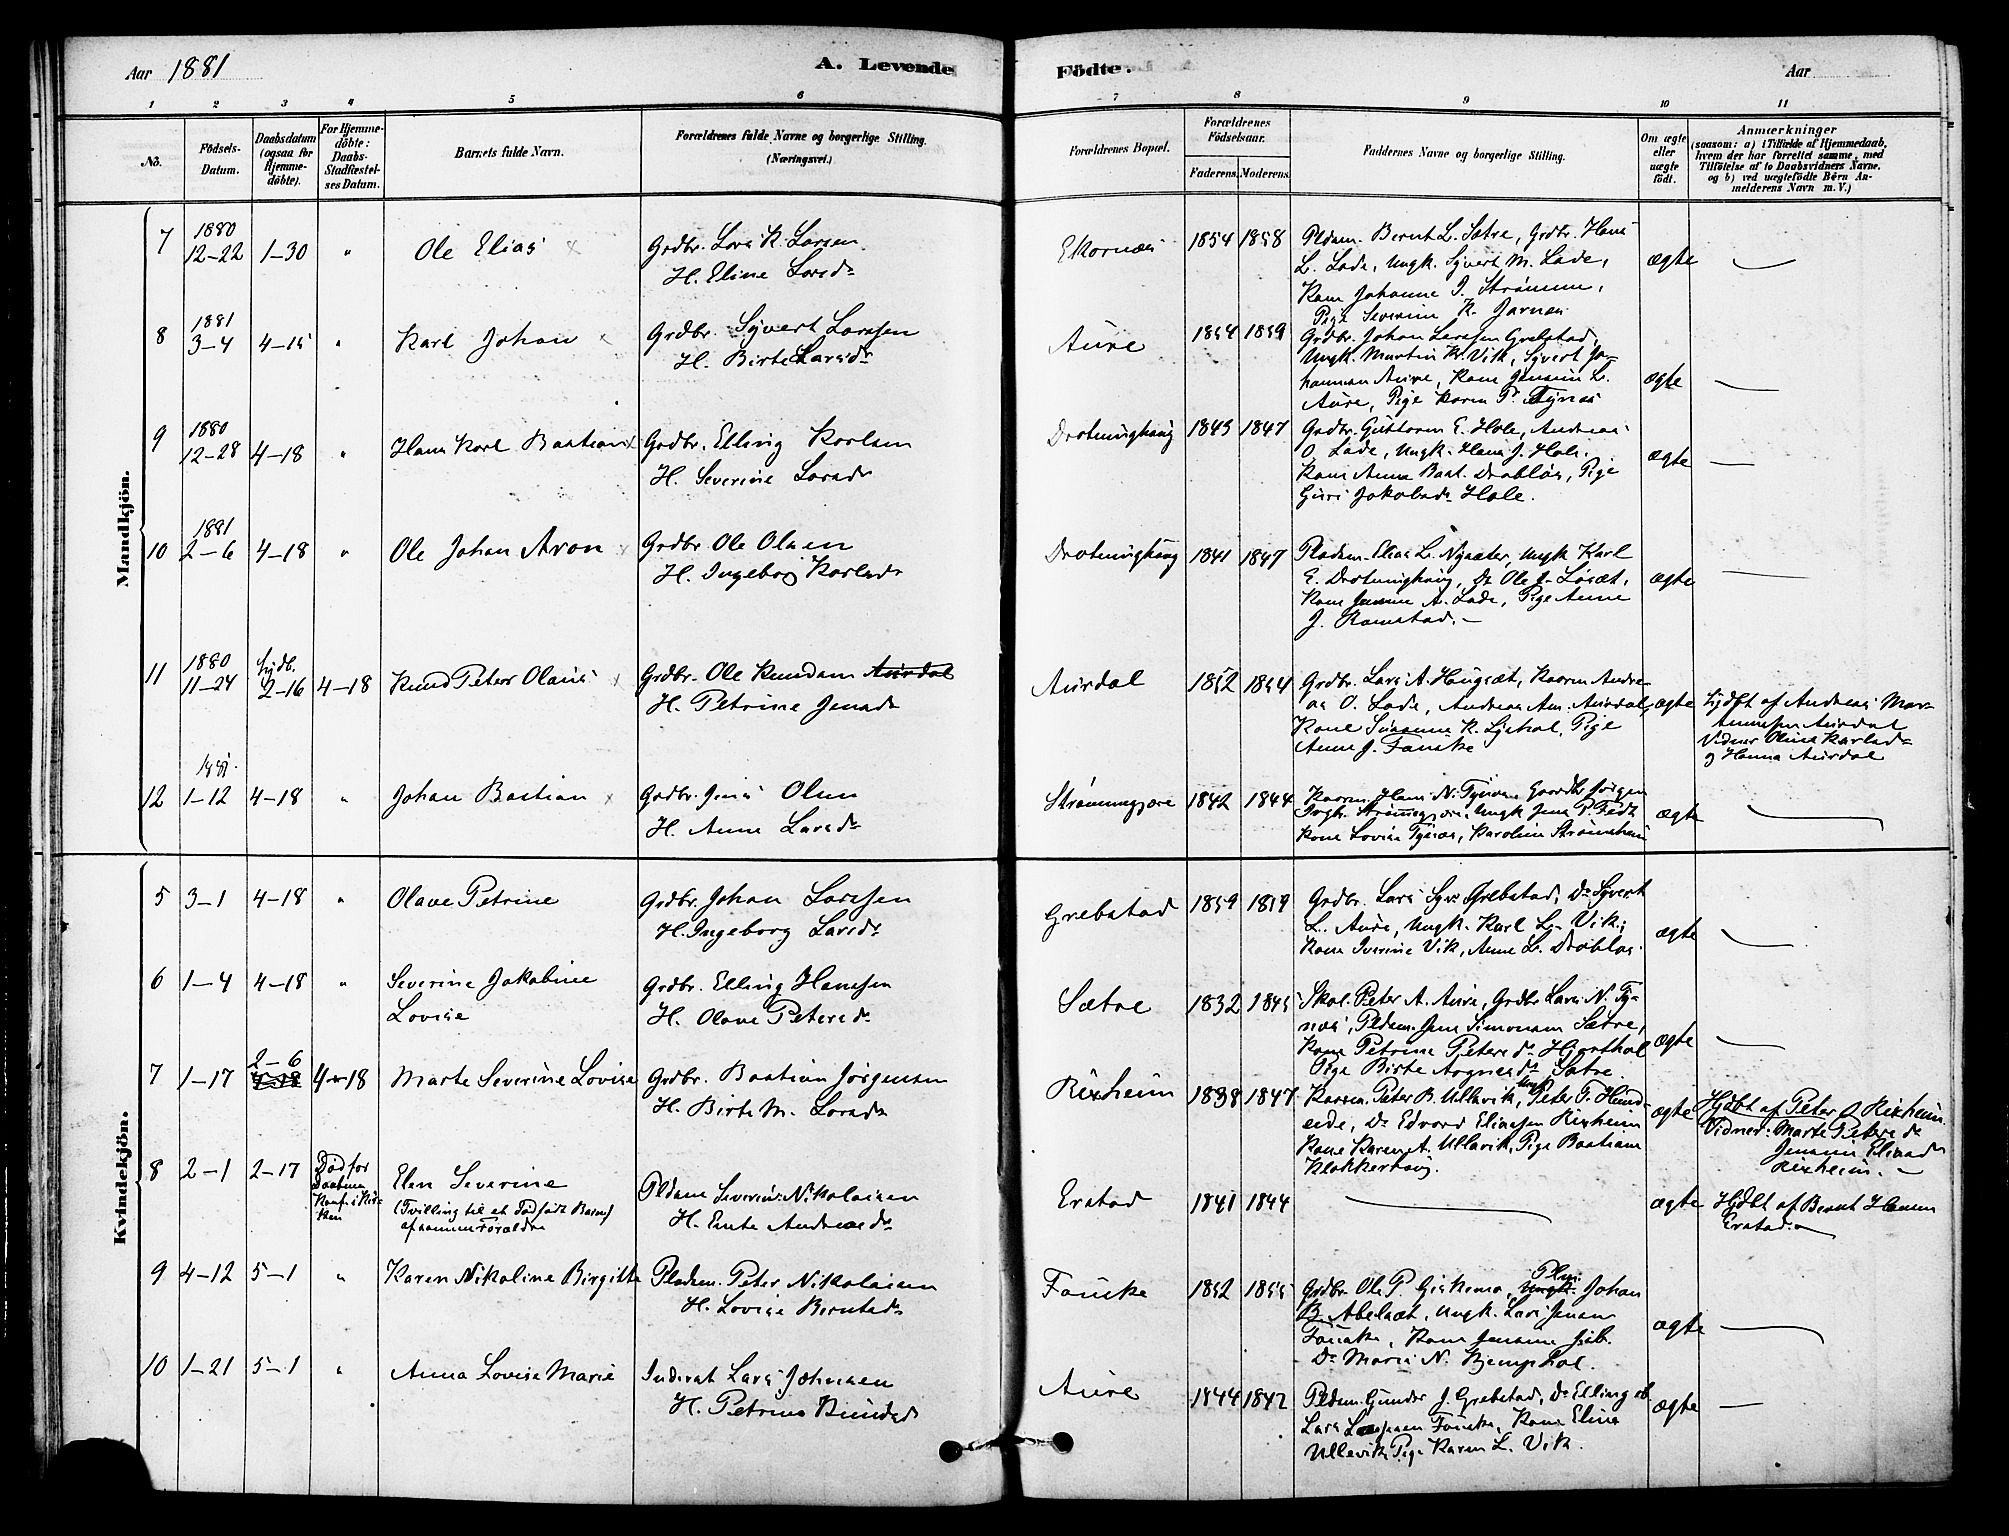 Aar 1881
A. Levende
Födte.
Aar
1 2 3 4 5 6 7 8 9 10 11
No.
Födsels-
Datum.
Daabsdatum
(ogsaa for
Hjemme-
döbte).
For Hjemme-
döbte:
Daabs-
Stadfæstel-
ses Datum.
Barnets fulde Navn.
Forældrenes fulde Navne og borgerlige Stilling.
(Næringsvei.)
Forældrenes Bopæl.
Forældrenes
Födselsaar.
Faderens.
Moderens.
Faddernes Navne og borgerlige Stilling.
Om ægte
eller
uægte
födt.
Anmærkninger
(saasom: a) i Tilfælde af Hjemmedaab,
hvem der har forrettet samme, med
Tilföielse af to Daabsvidners Navne.
og b) ved uægtefödte Börn An-
melderens Navn m. V.)
Mandkjön.
7 1880 12-22 1-30 " Ole Elias
Grdbr. Lars K. Larsen
H. Eline Larsdr
Ekornæs 1854 1858
Pldsm. Bernt L. Sætre, Grdbr. Hans
L. Lade, Ungk. Syvert M. Lade,
Kone Johanne J. Strømme,
Pige Severine K. Jarnæs
ægte
8 1881 3-4 4-15 " Karl Johan
Grdbr. Syvert Larssen
H. Birte Larsdr
Aure 1854 1859
Grdbr. Johan Larssen Grebstad,
Ungk. Martin Kr. Vik, Syvert Jo-
hannsen Aure, Kone Jensine L.
Aure, Pige Karen P. Tynæs
ægte
9 1880 12-28 4-18 " Hans Karl Bastian
Grdbr. Elling Karlsen
H. Severine Larsdr
Drotninghaug 1845 1847
Grdbr. Guttorm E. Hole, Andreas
O. Lade, Ungk. Hans J. Hole,
Kone Anne Bast. Drabløs, Pige
Guri Jakobsdr Hole.
ægte
10 1881 2-6 4-18 " Ole Johan Aron
Grdbr Ole Olsen
H. Ingeborg Karlsdr
Drotninghaug 1841 1847
Pladsm. Elias L. Nysæter, Ungk Karl
E. Drotninghaug, Do Ole J. Løsæt,
Kone A. Lade, Pige Anne
J. Ramstad.
ægte
11 1880 11-24 Hjdb. 2-16 4-18 Knud Peter Olaus
Grdbr. Ole Knudsen Aurdal
H. Petrine Jensdr
Aurdal 1852 1854
Grdbr. Lars A. Haugsæt, Kaarm. Andre-
as O. Lade, Andreas Am. Aurdal,
Kone Susanne K. Lyshol, Pige
Anne J. Fauske
ægte
Hjdbt af Andreas
Aurdal
Vidner Oline Karlsdr
og Hanna Aurdal
12 1881. 1-12 4-18 " Johan Bastian
Grdbr. Jens Olsen
H. Anne Larsdr
Strømmegjære 1842 1844
Kaarm. Hans N. Tynæs Jørgen
Strømmegjære, Ungk Jens P. Fedt
Kone Lovise Tynæs, Karoline Strømsheim
ægte
Kvindekjön.
5 3-1 4-18 " Olave Petrine
Grdbr. Johan Larssen
H. Ingeborg Larsdr
Grebstad 1859 1859
Grdbr. Lars Syv. Grebstad, Do Syvert
L. Aure, Ungk. Karl L. Vik,
Kone Iverine Vik, Anne L. Drabløs.
ægte
6 1-4 4-18 " Severine Jakobine
Lovise
Grdbr. Elling Hansen
H. Olave Petersdr
Sætre 1832 1845
Skol. Peter A. Aure, Grdbr Lars N. Ty-
næs, Pldsm. Jens Simonsen Sætre,
Kone Petrine Petersdr Hjorthol
Pige Birte Sætre.
ægte
7 1-17 2-6 4-18 4-18 Marte Severine Lovise
Grdbr. Bastian Jørgensen
H. Birte M. Larsdr
Rixheim 1838 1847
Kaarm. Peter B. Ullavik, Ungk Peter T. Hund-
eide, Do Edvard Eliassen Rixheim
Kone Karen A. Ullavik, Pige Bastiane
Klokkerhaug.
ægte
Hjdbt af Peter O Rixheim.
Vidner: Marte Petersdr
Jensine Eliasdr
Rixheim.
8 2-1 2-17 Död for
Daabens
Konf. i Kir-
ken
Elen Severine
(Tvilling til et Dödfödt Barn)
af samme Forældre
Pldsm Severin Nikolaisen
H. Ente Andreasdr
Erstad 1841 1844
ægte
Hjdbt af Bernt Hansen
Erstad.
9 4-12 5-1 " Karen Nikoline Birgitte
Pladsm. Peter Nikolaisen
H. Lovise Berntsdr
Fauske 1852 1855
Grdbr. Ole P. Giskemo, Johan
B. Abelsæt, Ungk. Lars Jensen
Fauske, Kone Jensine
Do Marie N. Kjemphol.
ægte
10 1-21 5-1 " Anna Lovise Marie
Inderst Lars Johnsen
H. Petrine Knudsdr
Aure 1844 1842
Pldsm. Gunder J. Grebstad, Do Elling
Lars Fauske, Kone Eline
Ullevik, Pige Karen L. Vik.
ægte